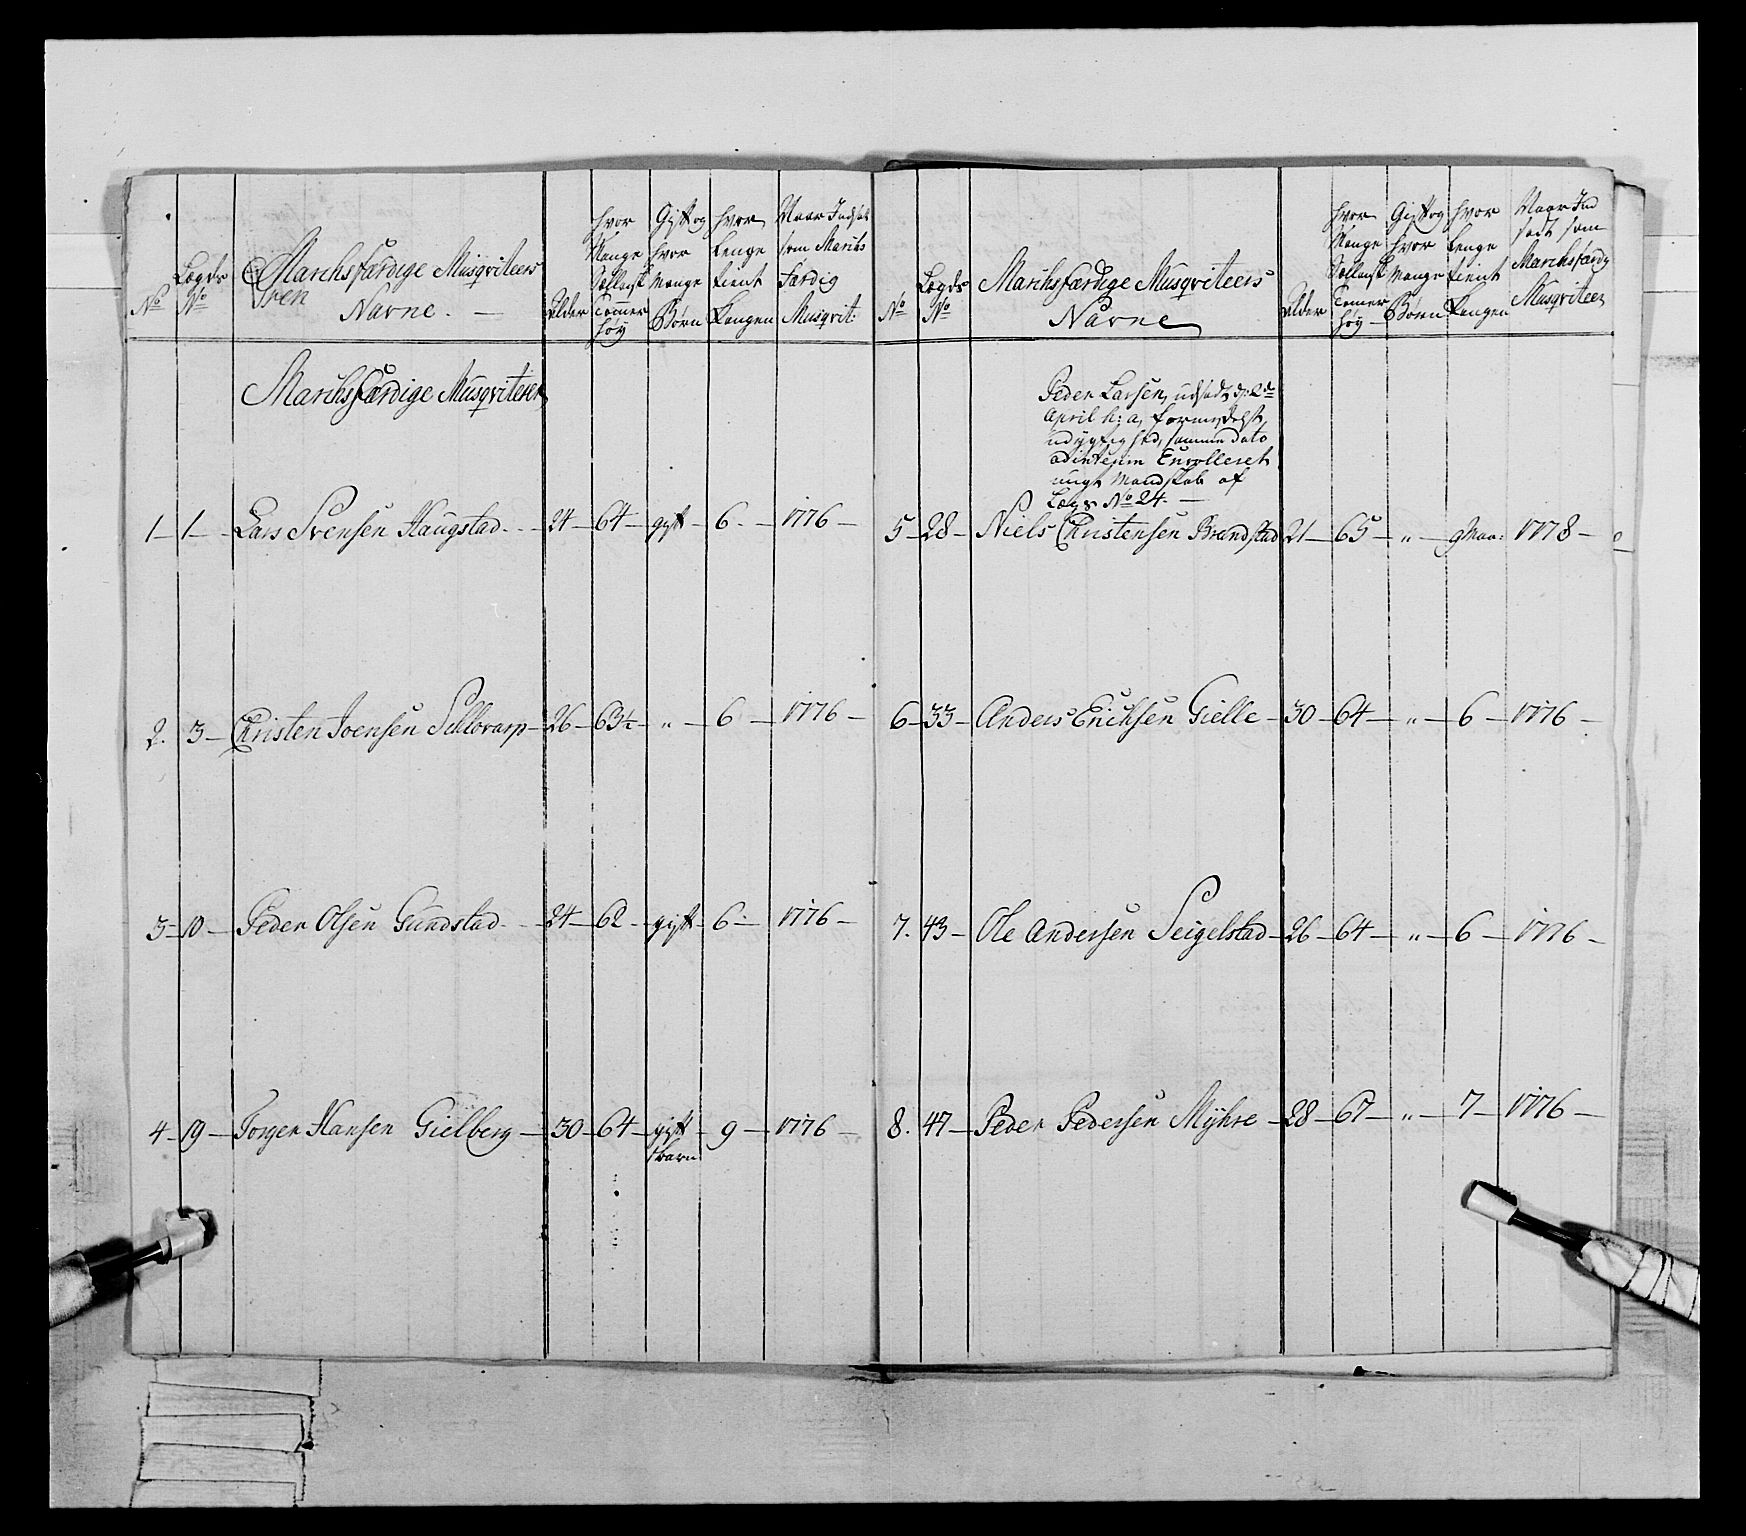 No
Lægds No
Marchsfærdige Musqviteers
Navne.
Alder
hvor Mange Sællansk Tommer høy
Gift og hvor Mange Børn
hvor Lenge tient Kongen
Naar Indsat som Marchs Færdig Musqvit:
Marchsfærdige Musqviterer
1 - 1 - Lars Svensen Haugstad - 24 - 64 - gift - 6 - 1776 -
2. 3 - Christen Joensen Schlovarp - 26 - 63½ - " - 6 - 1776 -
3 - 10 - Peder Olsen Gundstad - 24 - 62 - gift - 6 - 1776 -
4 - 19 - Torger Hansen Gielberg - 30 - 64 - gift - 9 - 1776 -
1 barn
No
Lægds No
Marchsfærdige Musqviteers
Navne
Alder
hvor Mange Sællansk Tomer høy
Gift og hvor Mange Børn
hvor Lenge tient Kongen
Naar Ind sadt som Marchsfærdig Musqviteer
Peder Larsen, udsadt d: 2de
April h: a, formedelst
udygtighed, samme dato
ad interim Enrolleret
ungt Mandskab af
Lægd No 24. -
5 - 28 - Niels Christensen Brandstad 21 - 65 - " - 9 Maa: 1778 -
6 - 33 - Anders Erichsen Gielle - 30 - 64 - " - 6 - 1776 -
7. 43 - Ole Andersen Seigelstad - 26 - 64 - " - 6 - 1776 -
8. 47 - Peder Pedersen Myhre - 28 - 67 - " - 7 - 1776 -